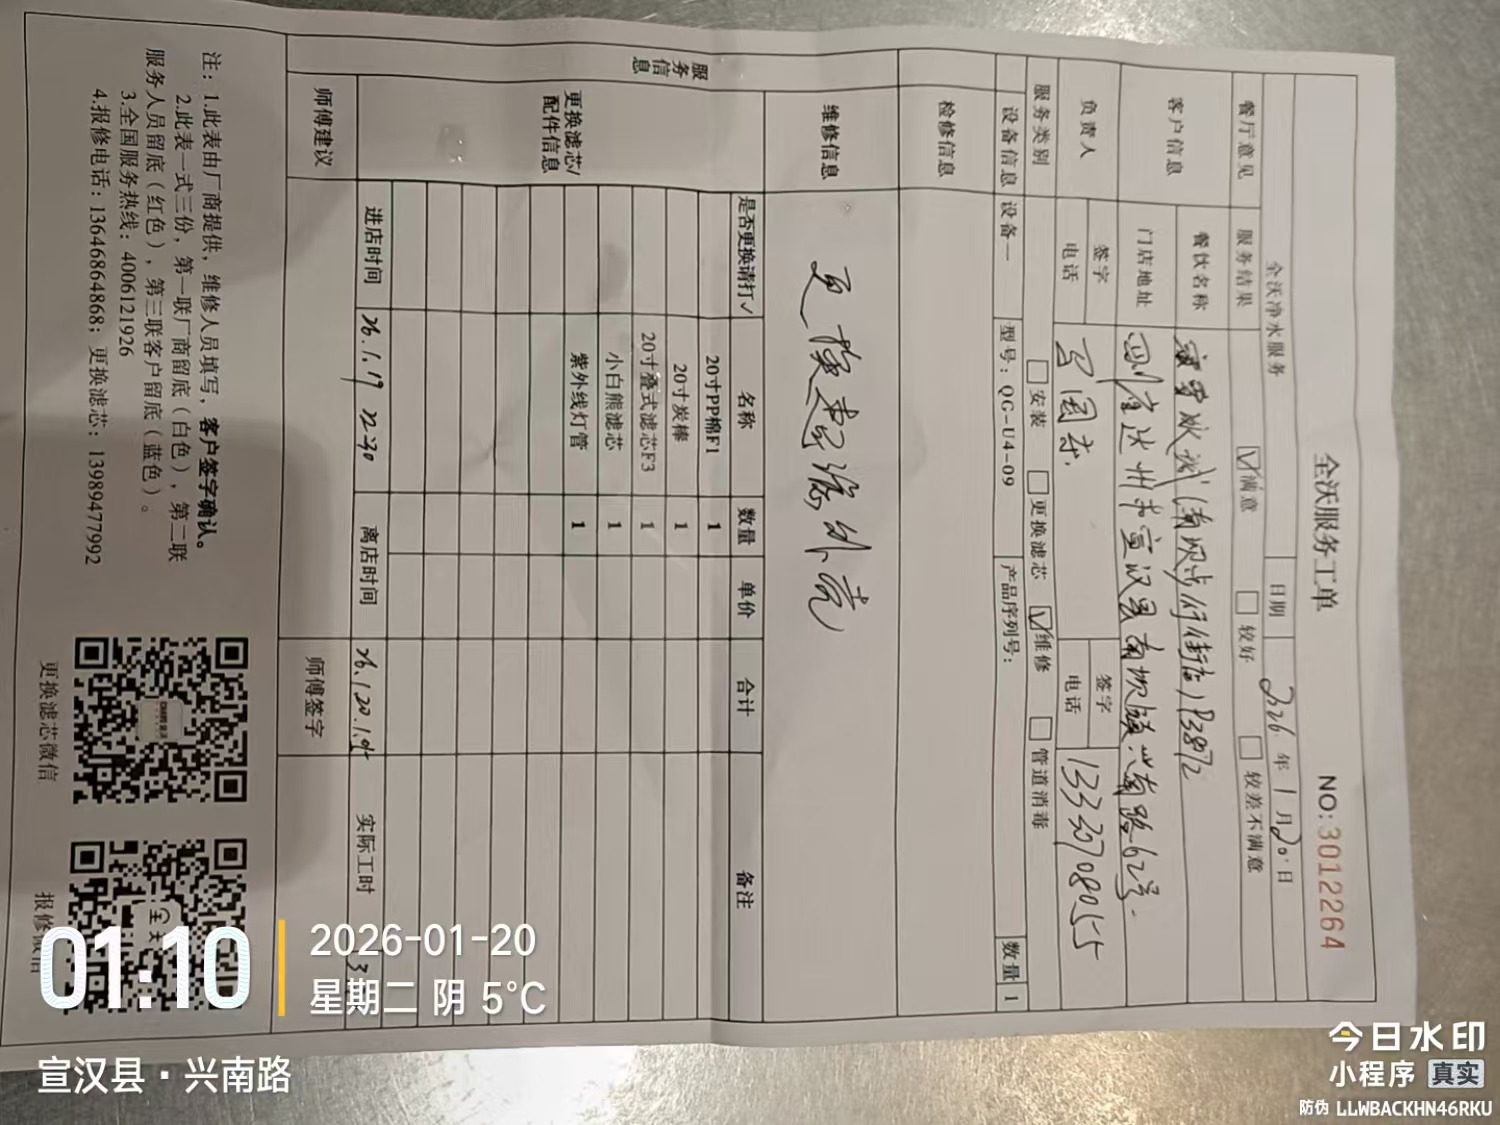 全沃服务工单
NO:3012264
全沃净水服务 日期 2026年1月20日
餐厅意见 服务结果 ☑满意 □较好 □较差不满意
客户信息 餐饮名称 蜜雪冰城(南坝步行街店)
门店地址 四川省达州市宣汉县南坝镇兴南路62号
负责人 签字 签字
电话 电话 13307080
服务类别 □安装 □更换滤芯 ☑维修 □管道消毒
设备信息 设备一 型号:QG-U4-09 产品序列号: 数量 1
服务信息
检修信息
维修信息 更换
更换滤芯/配件信息
是否更换请打✓ 名称 数量 单价 合计 备注
20寸PP棉F1 1
20寸炭棒 1
20寸叠式滤芯F3 1
小白熊滤芯 1
紫外线灯管 1
进店时间 26.1.19 22:30 离店时间 26.1.20.1. 实际工时 3
师傅建议 师傅签字
注:1.此表由厂商提供,维修人员填写,客户签字确认。
2.此表一式三份,第一联厂商留底(白色),第二联
服务人员留底(红色),第三联客户留底(蓝色)。
3.全国服务热线:4006121926
4.报修电话:13646864868;更换滤芯:13989477992
更换滤芯微信
报修微信
01:10
2026-01-20
星期二 阴 5°C
宣汉县·兴南路
今日水印
小程序 真实
防伪 LLWBACKHN46RKU